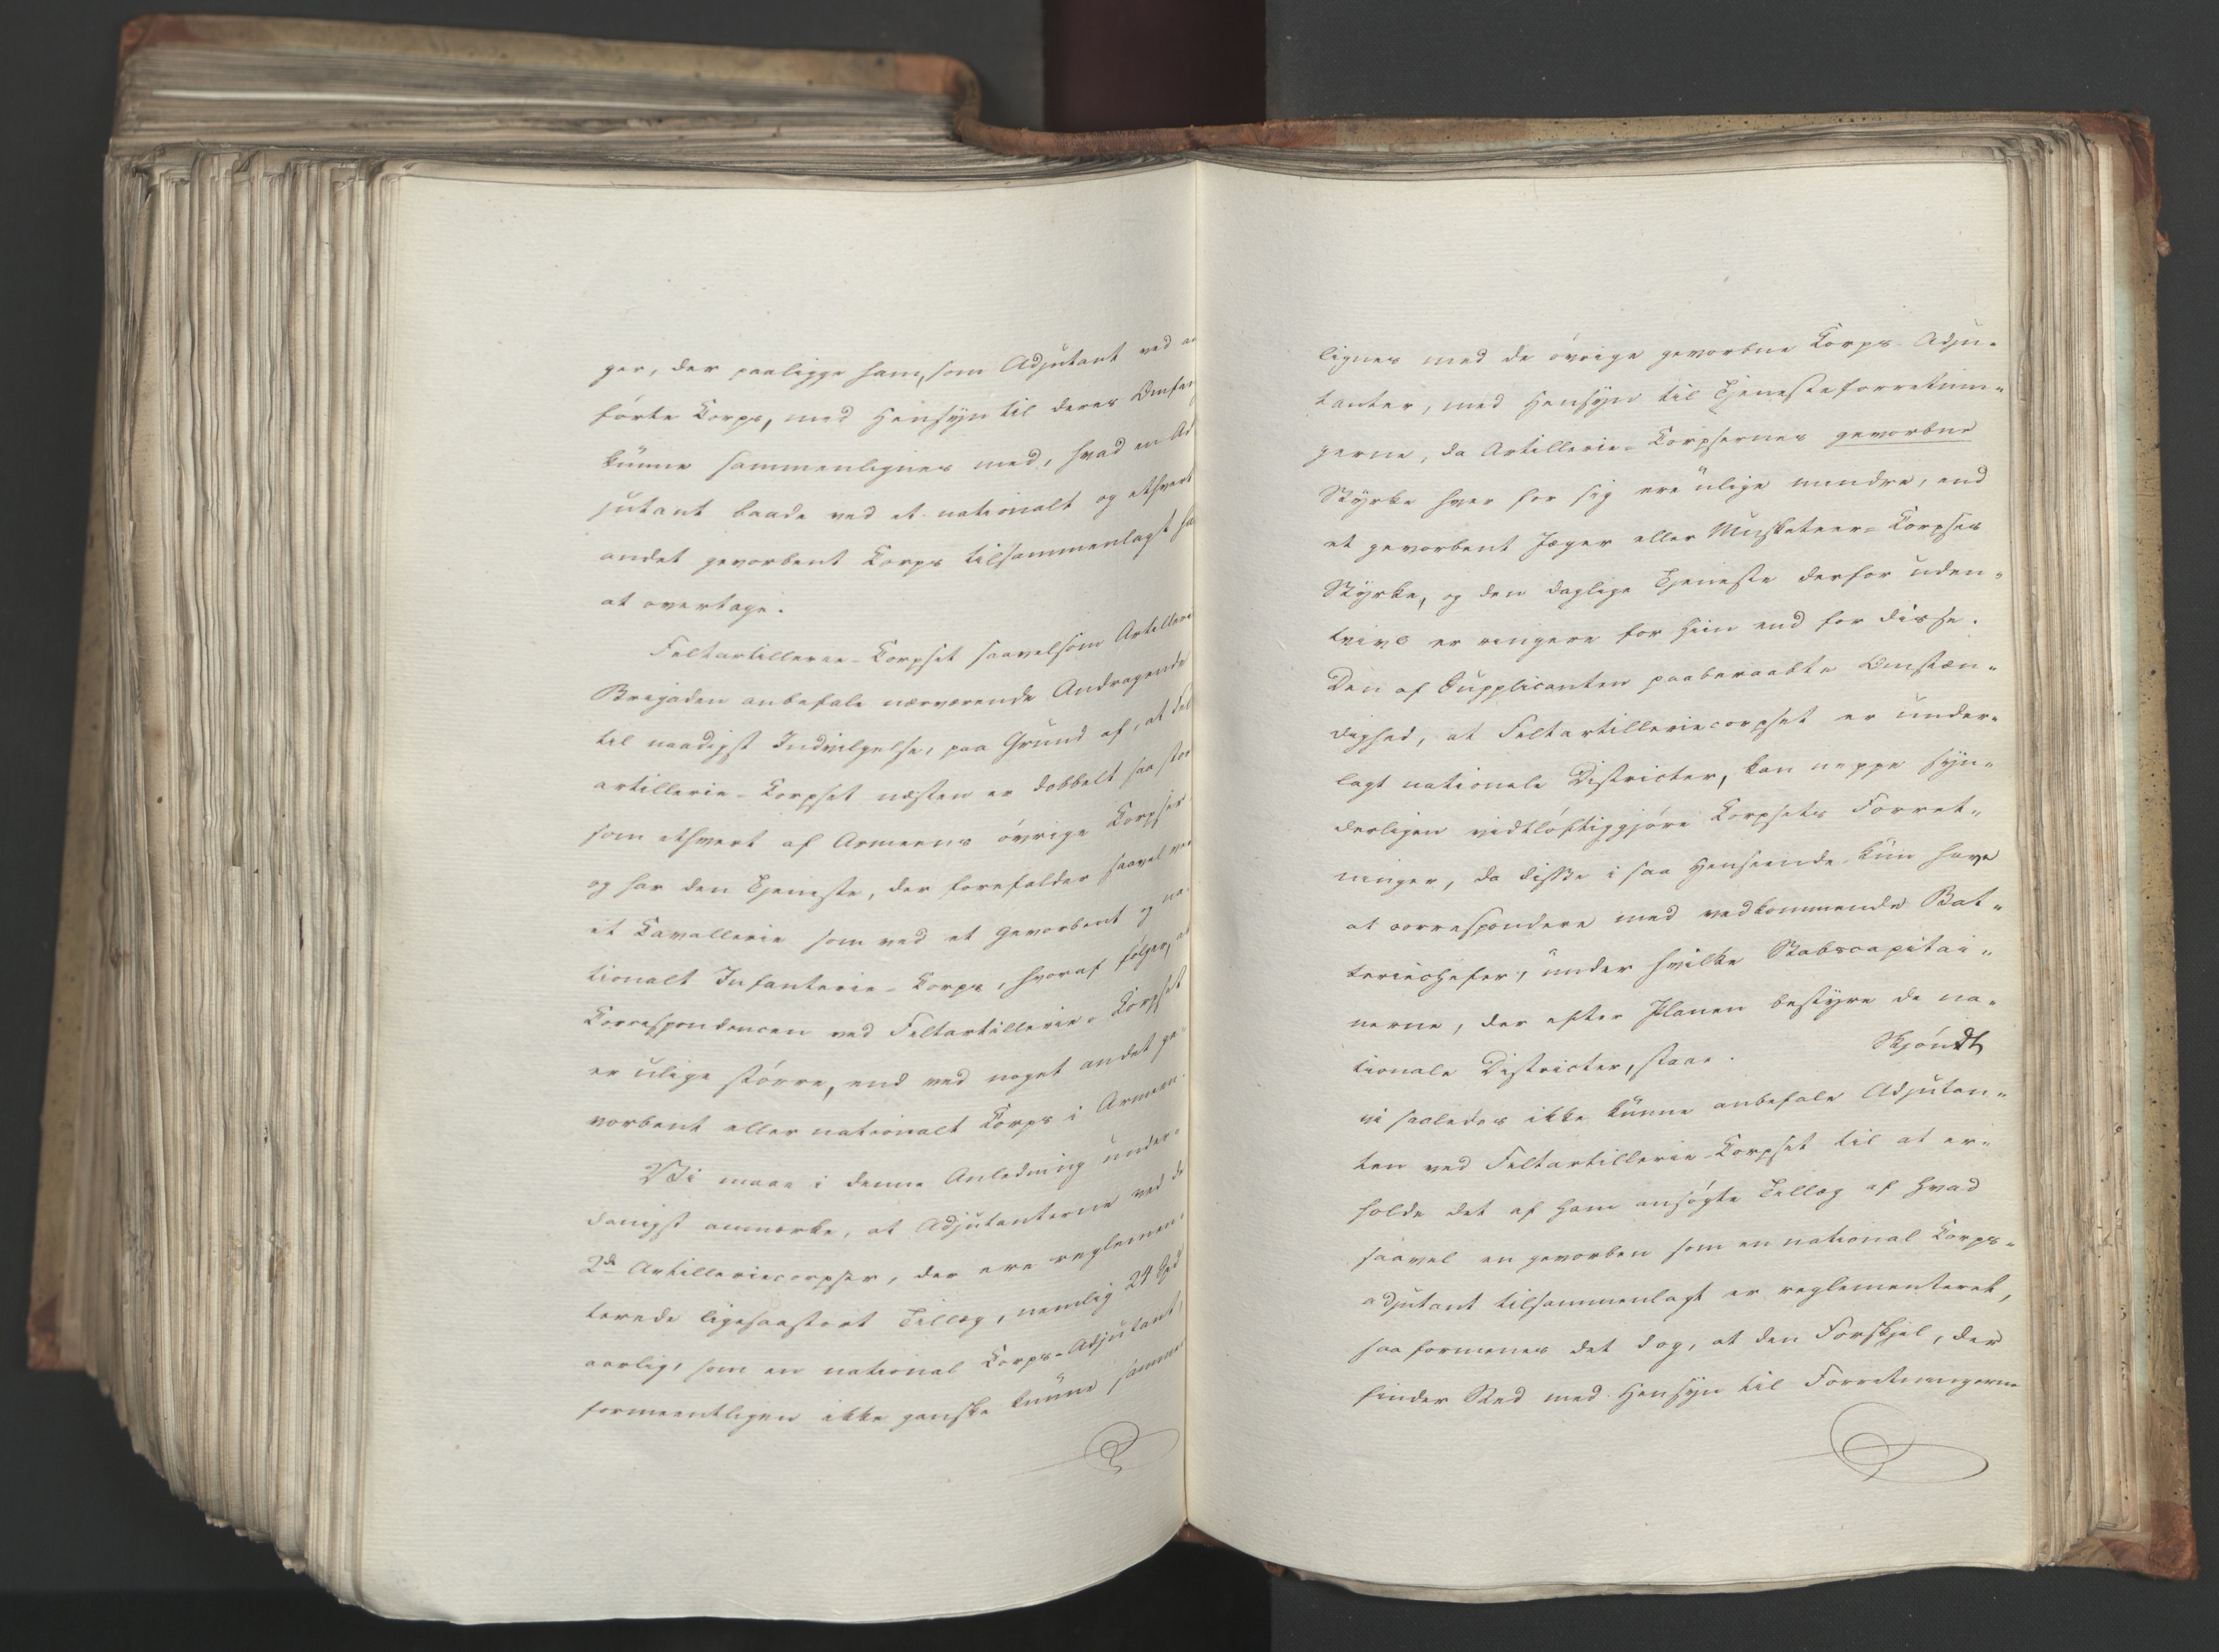 ger, der paaligge ham, som Adjutant ved
förte Korps, med Hensyn til deres Omfan
kunne sammenlignes med, hvad en Ad
jutant baade ved et nationalt og ethvert
andet gevorbent Korps tilsammenlagt ha
at overtage.
Feltartillerie-Korpset saavelsom Artillerie
Brigaden anbefale nærværende Andragende
til naadigst Indvilgelse, paa Grund af, at Felt
artillerie-Korpset næsten er dobbelt saa stor
som ethvert af Armeens övrige Korpser,
og har den Tjeneste, der forefalder saavel ved
et Kavallerie som ved et Gevorbent og na-
tionalt Infanterie-Korps, hvoraf fölger, at
Korrespondencen ved Feltartillerie-Korpset
er ulige större, end ved noget andet ge-
vorbent eller nationalt Korps i Armeen.
Vi maae i denne Anledning under-
danigst anmærke, at Adjutanterne ved de
2de Artilleriecorpser, der ere reglemen-
terede ligesaastort Tillæg, nemlig 24 Spd
aarlig, som en national Korps-Adjutant,
formeentligen ikke ganske kunne sammen
lignes med de övrige gevorbne Korps-Adju-
tanter, med Hensyn til Tjenesteforretnin-
gerne, da Artillerie-Korpsernes gevorbne
Styrke hver for sig ere ulige mindre, end
et gevorbent Jæger eller Musketeer-Korpses
Styrke, og den daglige Tjeneste derfor uden-
tvivl er ringere for hiin end for disse.
Den af Supplicanten paaberaabte Omstæn-
dighed, at Feltartilleriecorpset er under-
lagt nationale Districter, kan neppe syn-
derligen vidtlöftiggjöre Korpsets Forret-
ninger, da disse i saa Henseende kun have
at correspondere med vedkommende Bat-
teriechefer, under hvilke Stabscapitai-
nerne, der efter Planen bestyre de na-
tionale Districter, staae. Skjöndt
vi saaledes ikke kunne anbefale Adjutan-
ten ved Feltartillerie-Korpset til at er-
holde det af ham ansögte Tillæg af hvad
saavel en gevorben som en national Korps-
adjutant tilsammenlagt er reglementeret,
saa formenes det dog, at den Forskjel, der
finder Sted med Hensyn til Forretningerne